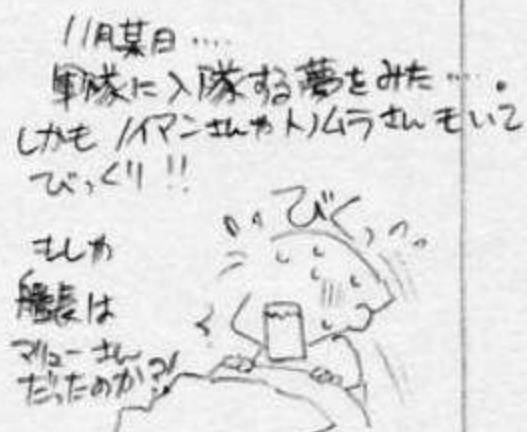 11月某日‥‥
軍隊に入隊する夢をみた‥‥。
しかもノイマンさんやトノムラさんもいて
びっくり!!
びくっ
もしや
艦長は
マリューさん
だったのか?!